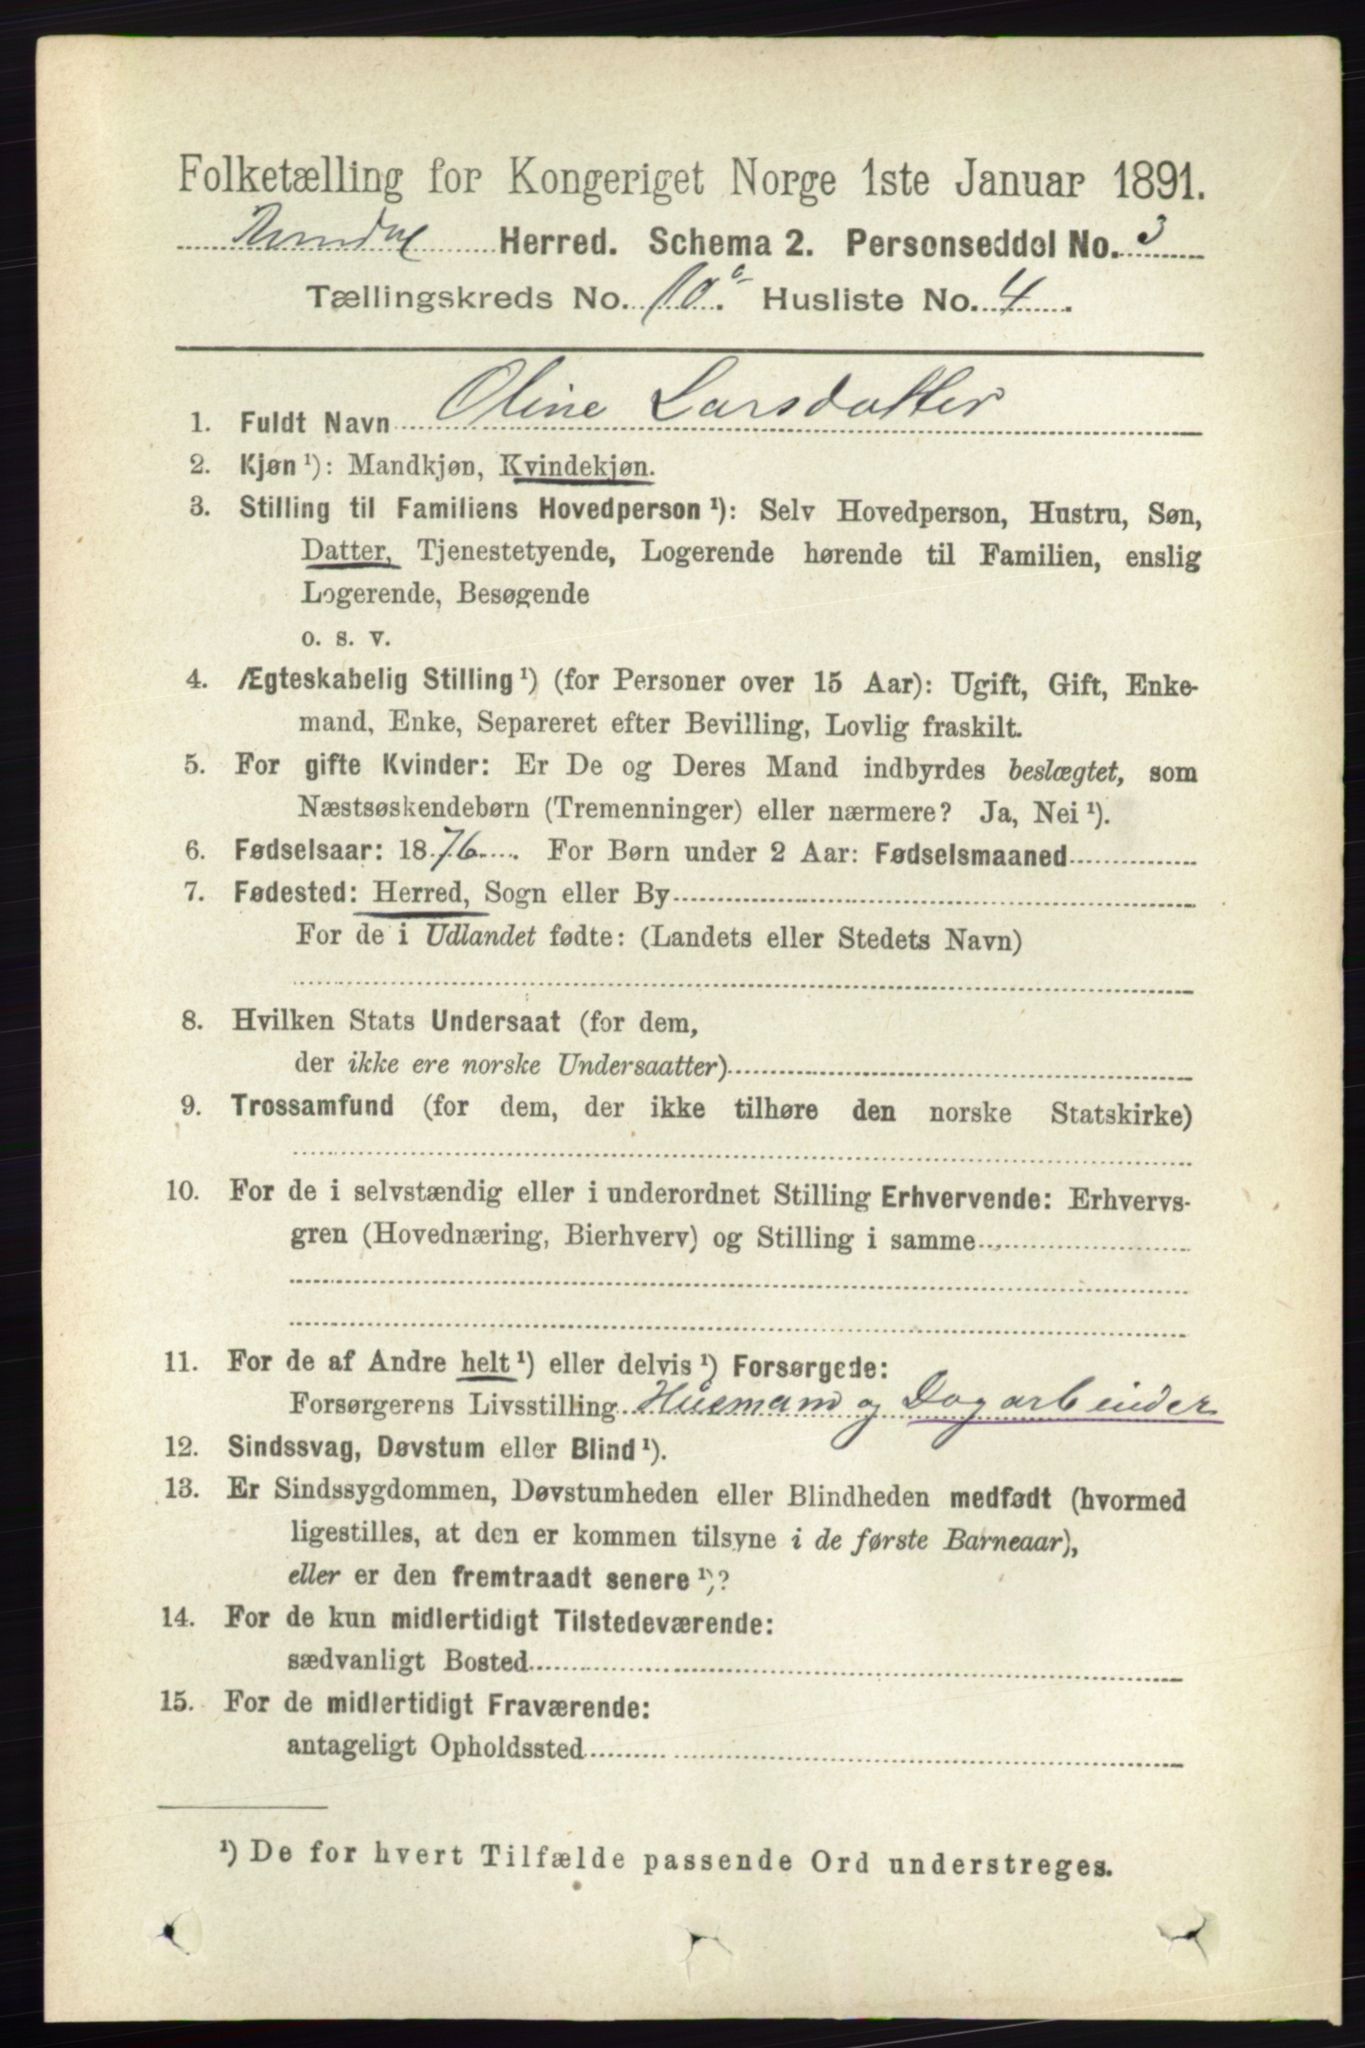 Folketælling for Kongeriget Norge 1ste Januar 1891.
Herred. Schema 2. Personseddel No. 3
Tællingskreds No. 10. Husliste No. 4.
1. Fuldt Navn Oline Larsdatter
2. Kjøn ¹): Mandkjøn, Kvindekjøn.
3. Stilling til Familiens Hovedperson ¹): Selv Hovedperson, Hustru, Søn,
Datter, Tjenestetyende, Logerende hørende til Familien, enslig
Logerende, Besøgende
o. s. v.
4. Ægteskabelig Stilling ¹) (for Personer over 15 Aar): Ugift, Gift, Enke-
mand, Enke, Separeret efter Bevilling, Lovlig fraskilt.
5. For gifte Kvinder: Er De og Deres Mand indbyrdes beslægtet, som
Næstsøskendebørn (Tremenninger) eller nærmere? Ja, Nei ¹).
6. Fødselsaar: 1876. For Børn under 2 Aar: Fødselsmaaned
7. Fødested: Herred, Sogn eller By
For de i Udlandet fødte: (Landets eller Stedets Navn)
8. Hvilken Stats Undersaat (for dem,
der ikke ere norske Undersaatter)
9. Trossamfund (for dem, der ikke tilhøre den norske Statskirke)
10. For de i selvstændig eller i underordnet Stilling Erhvervende: Erhvervs-
gren (Hovednæring, Bierhverv) og Stilling i samme
11. For de af Andre helt ¹) eller delvis ¹) Forsørgede:
Forsørgerens Livsstilling Husmand og Dagarbeider
12. Sindssvag, Døvstum eller Blind ¹).
13. Er Sindssygdommen, Døvstumheden eller Blindheden medfødt (hvormed
ligestilles, at den er kommen tilsyne i de første Barneaar),
eller er den fremtraadt senere ¹)?
14. For de kun midlertidigt Tilstedeværende:
sædvanligt Bosted
15. For de midlertidigt Fraværende:
antageligt Opholdssted
¹) De for hvert Tilfælde passende Ord understreges.